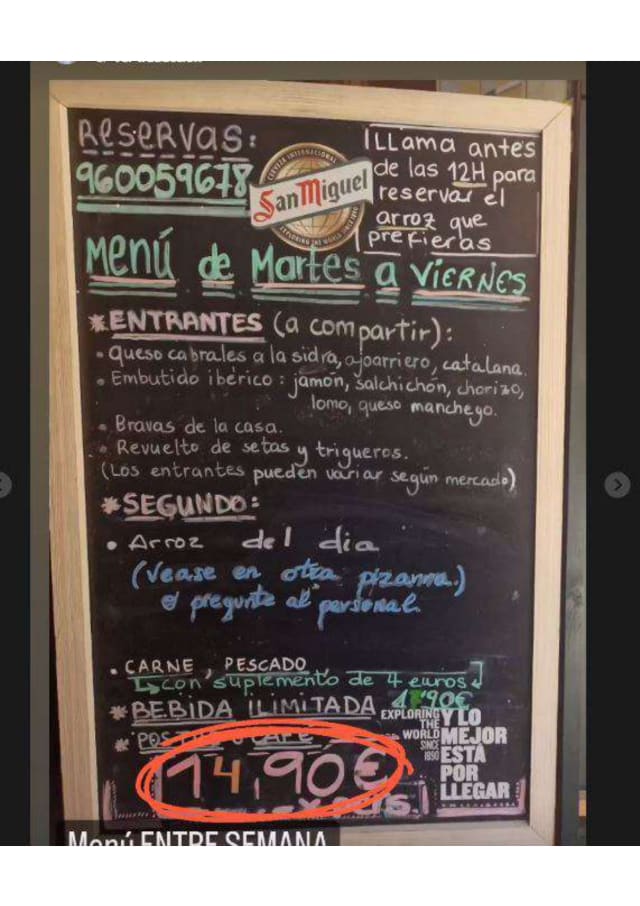 Reservas:
960059678
CERVEZA INTERNACIONAL
San Miguel
EXPLORING THE WORLD
¡LLama antes
de las 12H para
reservar el
arroz que
prefieras
Menú de Martes a VIERNES
*ENTRANTES (a compartir):
• Queso cabrales a la sidra, ajoarriero, catalana.
• Embutido ibérico: jamón, salchichón, chorizo,
lomo, queso manchego.
• Bravas de la casa.
• Revuelto de setas y trigueros.
(Los entrantes pueden variar según mercado)
*SEGUNDO:
• Arroz del dia
(Vease en otra pizarra)
o pregunte al personal.
• CARNE, PESCADO
con suplemento de 4 euros
* BEBIDA ILIMITADA 4'90€
* CAFÉ
14,90€
EXPLORING
THE
WORLD
SINCE
1890
Y LO
MEJOR
ESTÁ
POR
LLEGAR
Menú ENTRE SEMANA